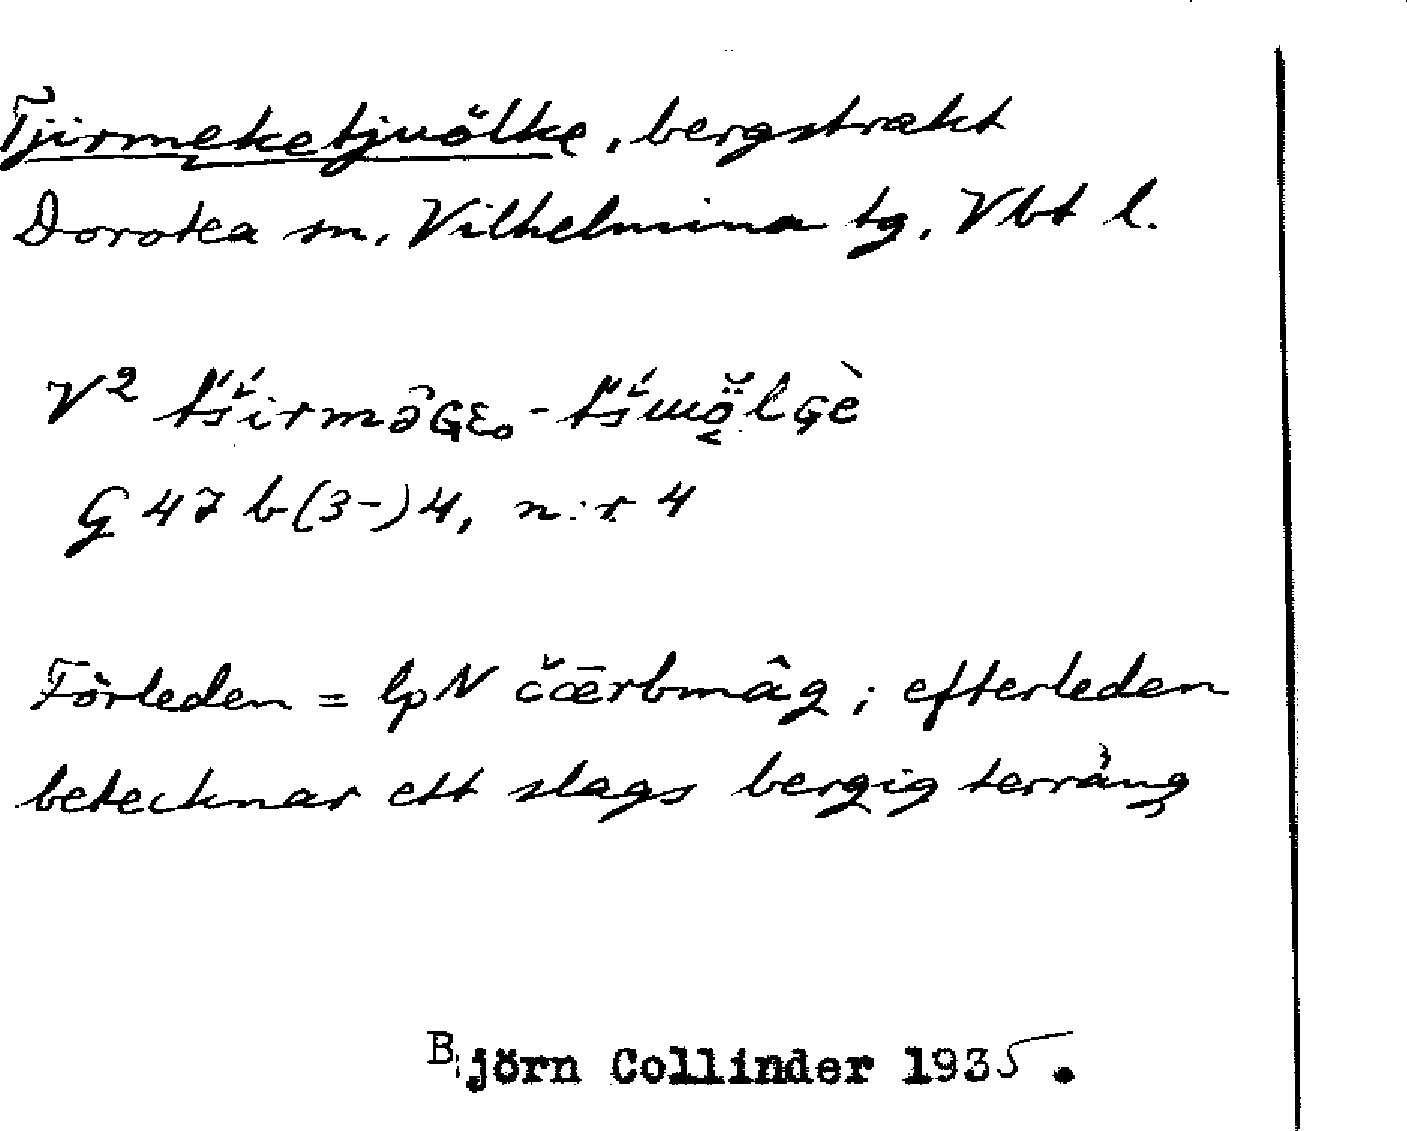 Tjirmeketjuölke, bergstrakt
Dorotea sn, Vilhelmina tg, Vbt l.
V² tśirmə̑Gε˳-tśɯö̬̆lGè
G 47 b(3-)4, n:r 4
Förleden = lpN čœ̄rbmâg; efterleden
betecknar ett slags bergig terräng
Björn Collinder 1935.